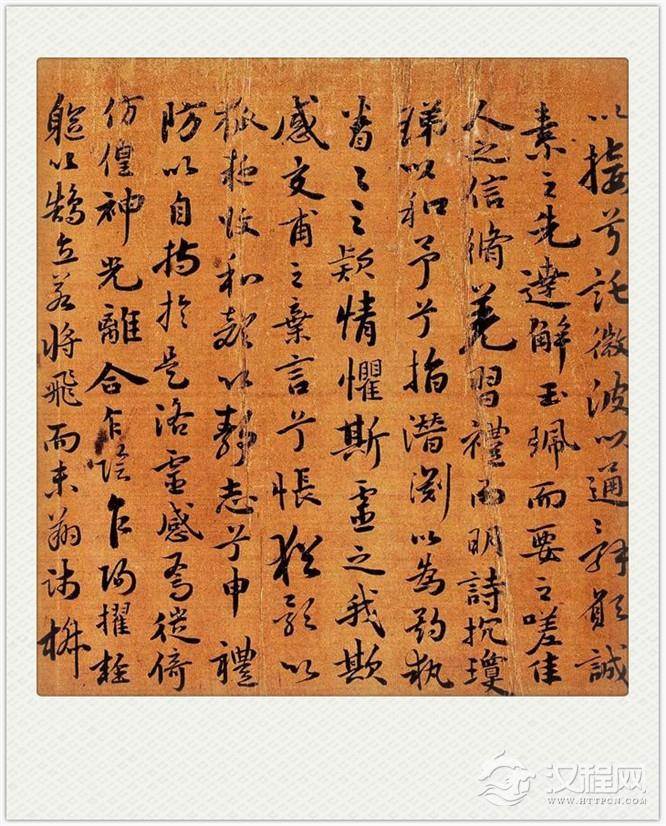 以接兮託微波以通辭願誠
素之先達解玉珮而要之嗟佳
人之信脩羌習禮而明詩抗瓊
珶以和予兮指潛淵以為期執
眷〻之款情懼斯靈之我欺
感交甫之棄言兮悵猶豫以
狐疑收和顏以靜志兮申禮
防以自持於是洛靈感焉徙倚
仿偟神光離合乍陰乍陽擢輕
軀以鶴立若將飛而未翔踐椒
汉程网
WWW.HTTPCN.COM